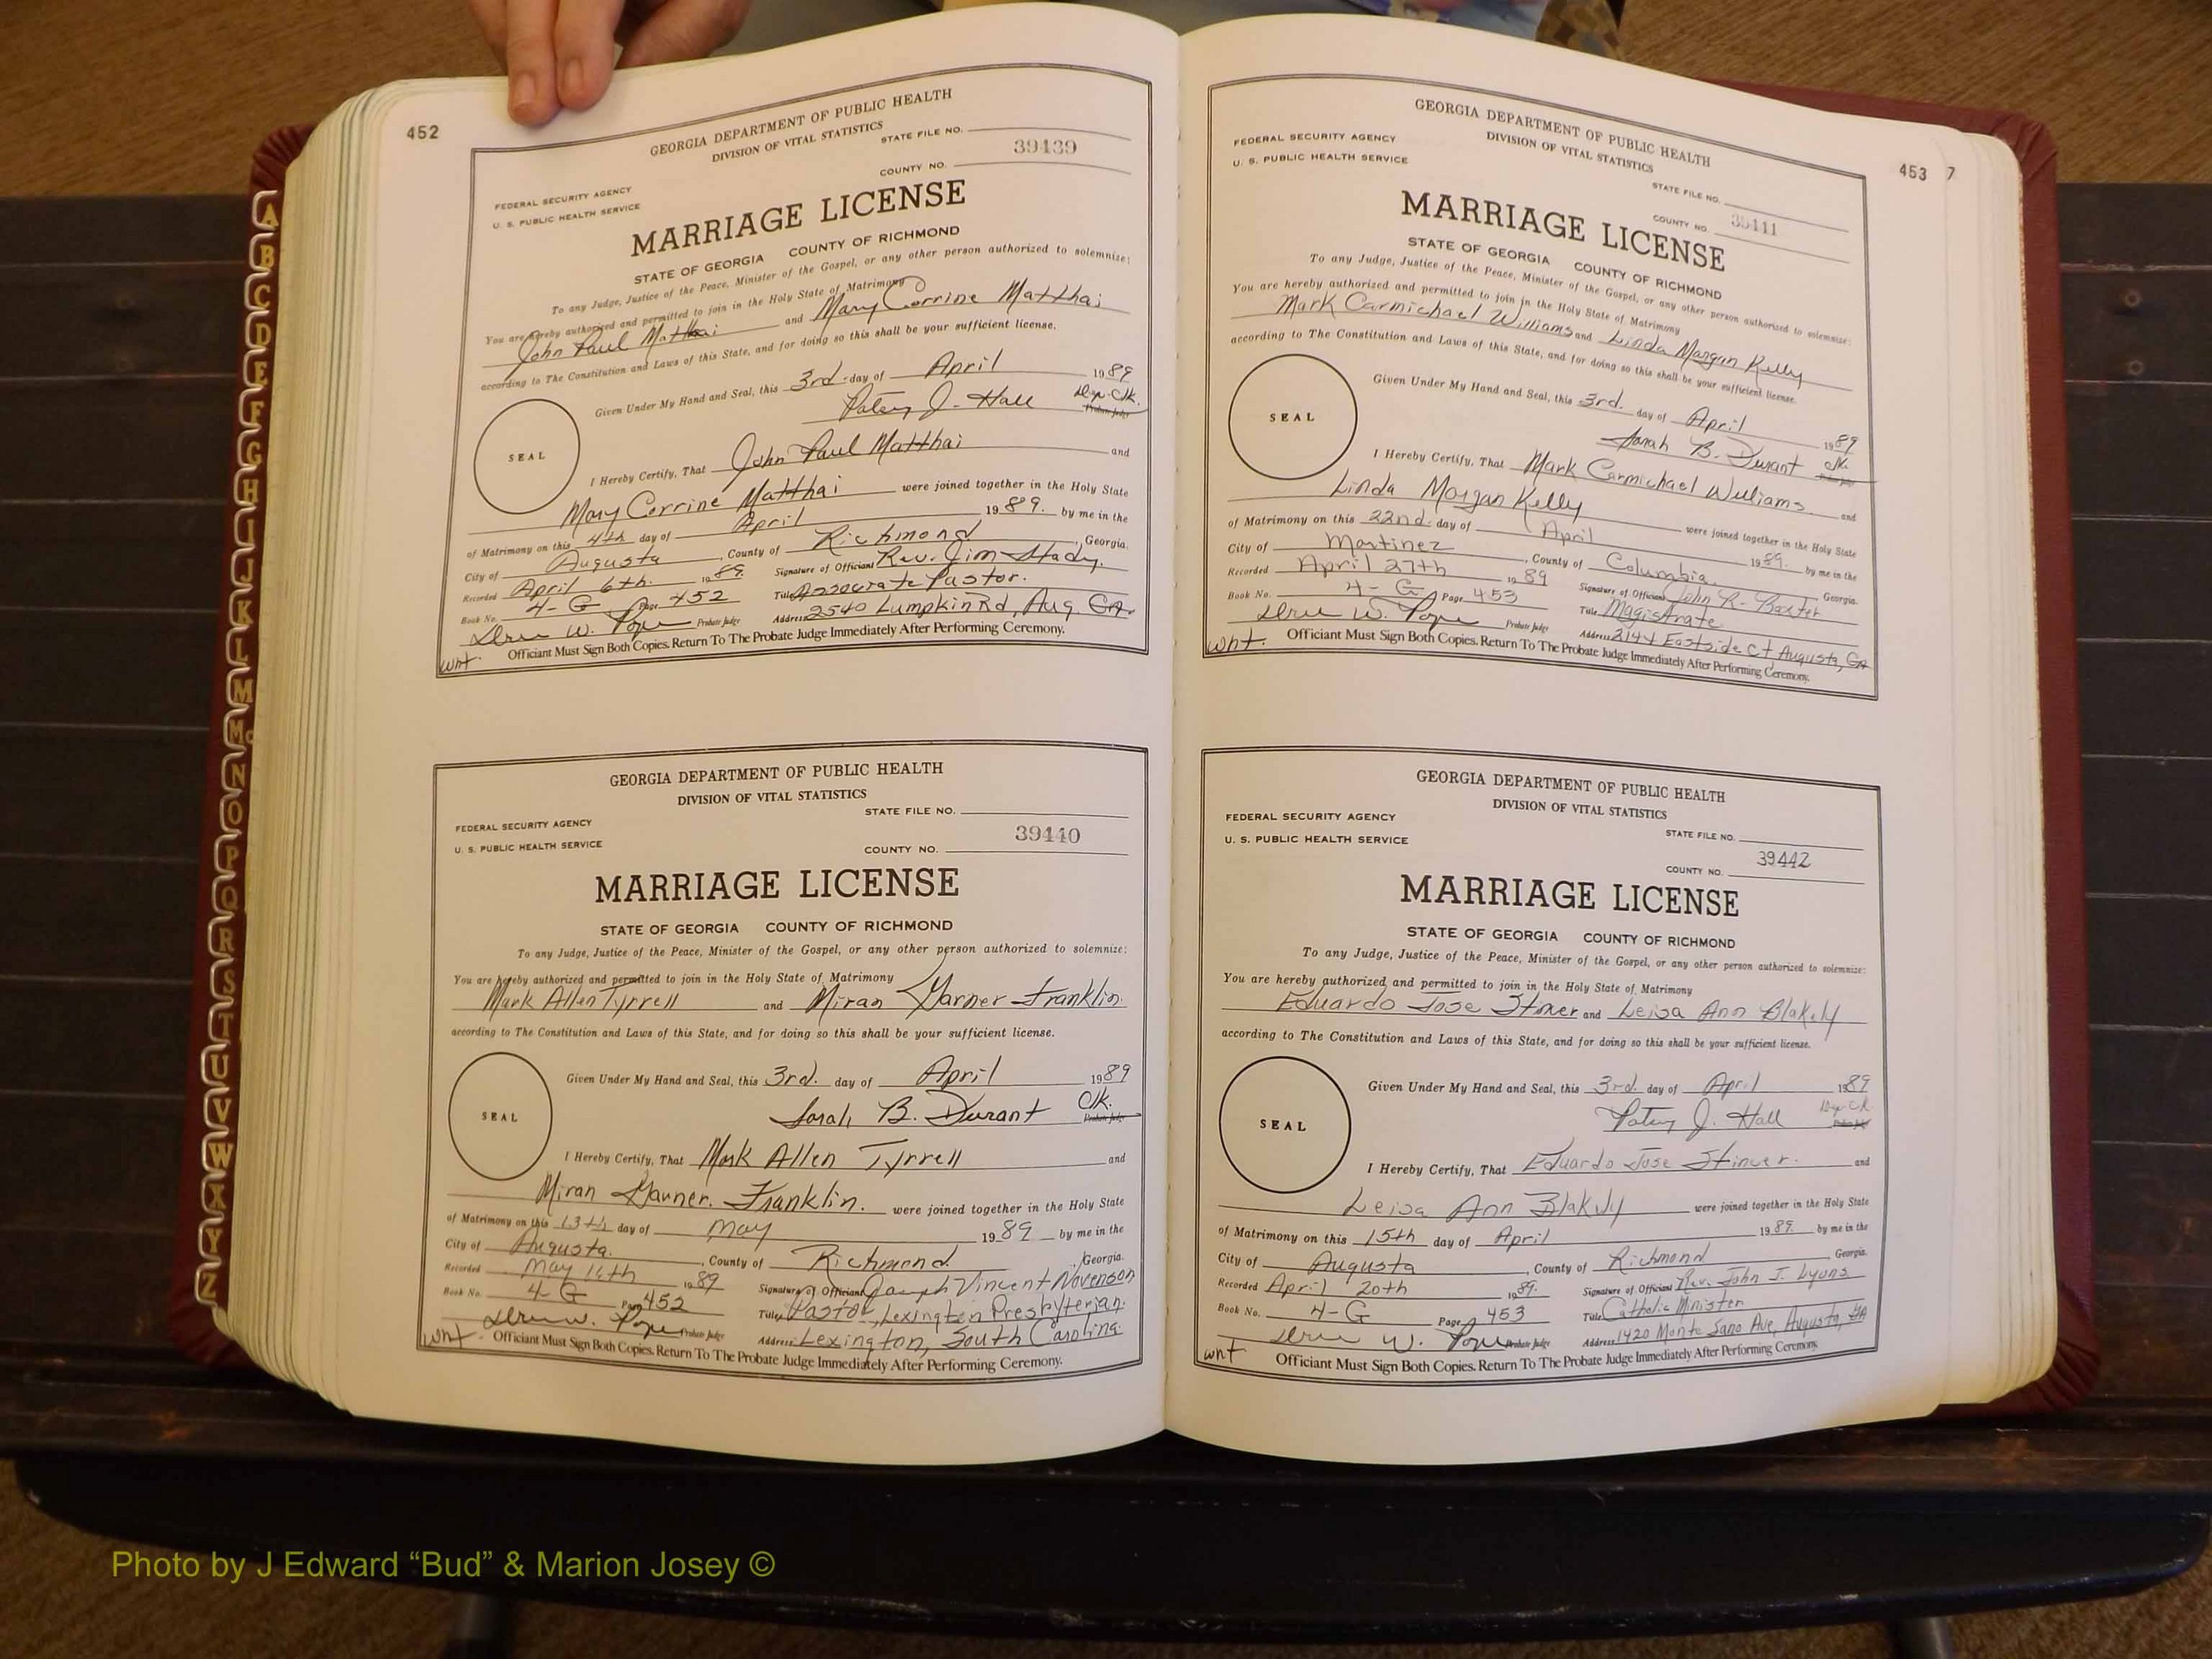 452
GEORGIA DEPARTMENT OF PUBLIC HEALTH
DIVISION OF VITAL STATISTICS
STATE FILE NO.
39439
COUNTY NO.
FEDERAL SECURITY AGENCY
U. S. PUBLIC HEALTH SERVICE
MARRIAGE LICENSE
STATE OF GEORGIA COUNTY OF RICHMOND
To any Judge, Justice of the Peace, Minister of the Gospel, or any other person authorized to solemnize:
You are hereby authorized and permitted to join in the Holy State of Matrimony
John Paul Matthai and Mary Corrine Matthai
according to The Constitution and Laws of this State, and for doing so this shall be your sufficient license.
Given Under My Hand and Seal, this 3rd. day of April 1989
Patsy J. Hall Dep. Clk.
Probate Judge
SEAL
I Hereby Certify, That John Paul Matthai and
Mary Corrine Matthai were joined together in the Holy State
of Matrimony on this 4th day of April 1989. by me in the
City of Augusta, County of Richmond, Georgia.
Recorded April 6th. 1989. Signature of Officiant Rev. Jim
Book No. 4-G Page 452 Title Associate Pastor.
W. Pope Probate Judge Address 2540 Lumpkin Rd, Aug. GA.
wnt. Officiant Must Sign Both Copies. Return To The Probate Judge Immediately After Performing Ceremony.
GEORGIA DEPARTMENT OF PUBLIC HEALTH
DIVISION OF VITAL STATISTICS
STATE FILE NO.
FEDERAL SECURITY AGENCY
39440
U. S. PUBLIC HEALTH SERVICE
COUNTY NO.
MARRIAGE LICENSE
STATE OF GEORGIA COUNTY OF RICHMOND
To any Judge, Justice of the Peace, Minister of the Gospel, or any other person authorized to solemnize:
You are hereby authorized and permitted to join in the Holy State of Matrimony
Mark Allen Tyrrell and Miran Garner Franklin.
according to The Constitution and Laws of this State, and for doing so this shall be your sufficient license.
Given Under My Hand and Seal, this 3rd. day of April 1989
Sarah B. Durant Clk.
Probate Judge
SEAL
I Hereby Certify, That Mark Allen Tyrrell and
Miran Garner. Franklin. were joined together in the Holy State
of Matrimony on this 13th day of May 1989 by me in the
City of Augusta. County of Richmond. Georgia.
Recorded May 1989 Signature of Officiant Joseph Vincent
Book No. 4-G Page 452 Title Pastor, Lexington Presbyterian.
W. Pope Probate Judge Address Lexington, South Carolina
wnt. Officiant Must Sign Both Copies. Return To The Probate Judge Immediately After Performing Ceremony.
453 7
GEORGIA DEPARTMENT OF PUBLIC HEALTH
DIVISION OF VITAL STATISTICS
FEDERAL SECURITY AGENCY
U. S. PUBLIC HEALTH SERVICE
STATE FILE NO.
COUNTY NO. 39441
MARRIAGE LICENSE
STATE OF GEORGIA COUNTY OF RICHMOND
To any Judge, Justice of the Peace, Minister of the Gospel, or any other person authorized to solemnize:
You are hereby authorized and permitted to join in the Holy State of Matrimony
Mark Carmichael Williams and Linda Morgan Kelly
according to The Constitution and Laws of this State, and for doing so this shall be your sufficient license.
Given Under My Hand and Seal, this 3rd. day of April 1989
Sarah B. Durant Clk.
Probate Judge
SEAL
I Hereby Certify, That Mark Carmichael Williams and
Linda Morgan Kelly were joined together in the Holy State
of Matrimony on this 22nd. day of April 1989. by me in the
City of Martinez, County of Columbia Georgia.
Recorded April 27th 1989 Signature of Officiant John R. Baxter
Book No. 4-G Page 453 Title Magistrate
W. Pope Probate Judge Address 2144 Eastside Ct Augusta, GA
wnt. Officiant Must Sign Both Copies. Return To The Probate Judge Immediately After Performing Ceremony.
GEORGIA DEPARTMENT OF PUBLIC HEALTH
DIVISION OF VITAL STATISTICS
FEDERAL SECURITY AGENCY
U. S. PUBLIC HEALTH SERVICE
STATE FILE NO.
39442
COUNTY NO.
MARRIAGE LICENSE
STATE OF GEORGIA COUNTY OF RICHMOND
To any Judge, Justice of the Peace, Minister of the Gospel, or any other person authorized to solemnize:
You are hereby authorized and permitted to join in the Holy State of Matrimony
Eduardo Jose Stiner and Leisa Ann Blakely
according to The Constitution and Laws of this State, and for doing so this shall be your sufficient license.
Given Under My Hand and Seal, this 3rd. day of April 1989
Patsy J. Hall Dep Clk
Probate Judge
SEAL
I Hereby Certify, That Eduardo Jose Stiner. and
Leisa Ann Blakely were joined together in the Holy State
of Matrimony on this 15th day of April 1989. by me in the
City of Augusta, County of Richmond, Georgia.
Recorded April 20th 1989. Signature of Officiant Rev. John J. Lyons
Book No. 4-G Page 453 Title Catholic Minister
W. Pope Probate Judge Address 1420 Monte Sano Ave, Augusta, GA
wnt Officiant Must Sign Both Copies. Return To The Probate Judge Immediately After Performing Ceremony.
A
B
C
D
E
F
G
H
I
J
K
L
M
Mc
N
O
P
Q
R
S
T
U
V
W
X
Y
Z
Photo by J Edward “Bud” & Marion Josey ©